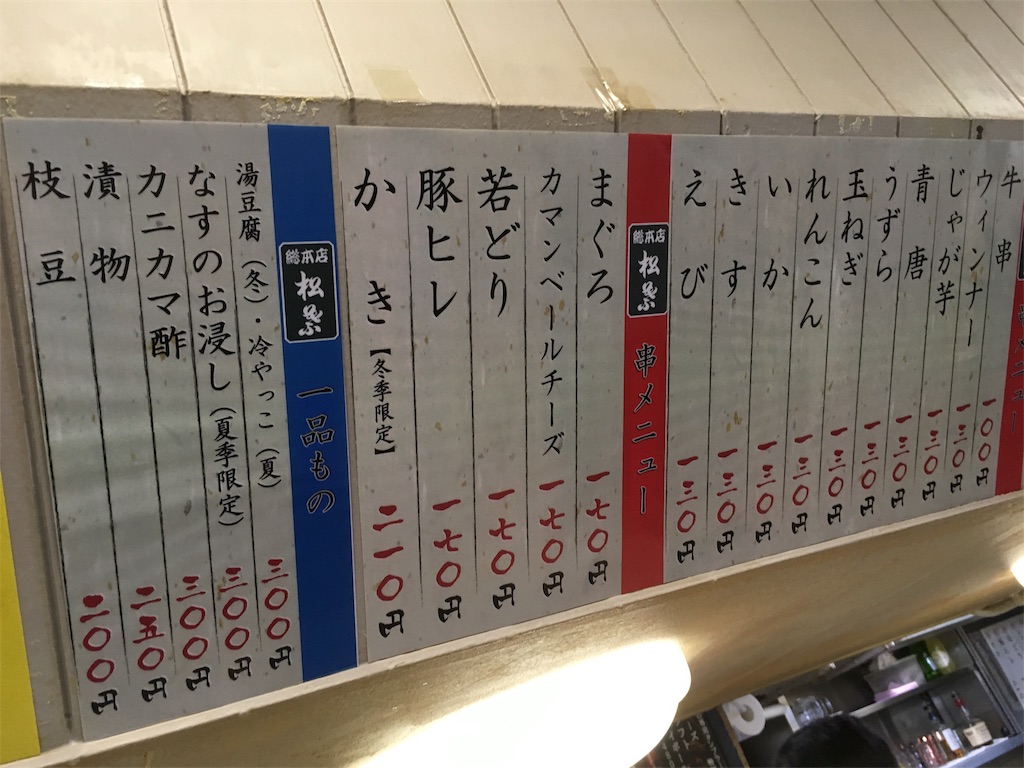 メニュー
牛串 一〇〇円
ウィンナー 一三〇円
じゃが芋 一三〇円
青唐 一三〇円
うずら 一三〇円
玉ねぎ 一三〇円
れんこん 一三〇円
いか 一三〇円
きす 一三〇円
えび 一三〇円
総本店 松葉 串メニュー
まぐろ 一七〇円
カマンベールチーズ 一七〇円
若どり 一七〇円
豚ヒレ 一七〇円
かき【冬季限定】 二一〇円
総本店 松葉 一品もの
湯豆腐(冬)・冷やっこ(夏) 三〇〇円
なすのお浸し(夏季限定) 三〇〇円
カニカマ酢 三〇〇円
漬物 二五〇円
枝豆 二〇〇円